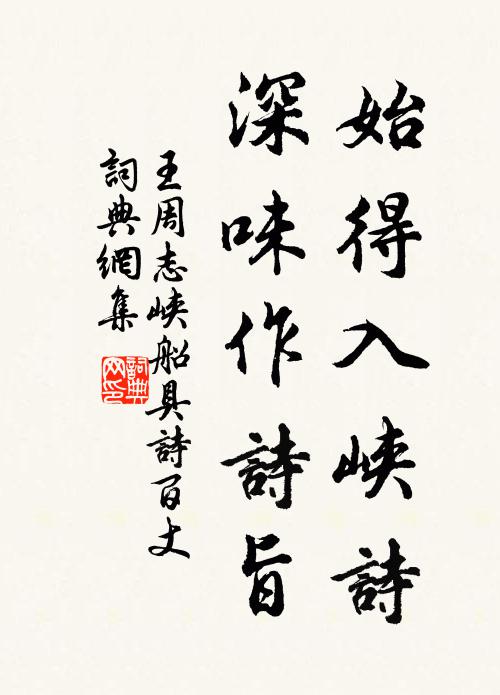 始得入峽詩
深味作詩旨
王周志峽船具詩百丈
詞典網集
詞典
网印